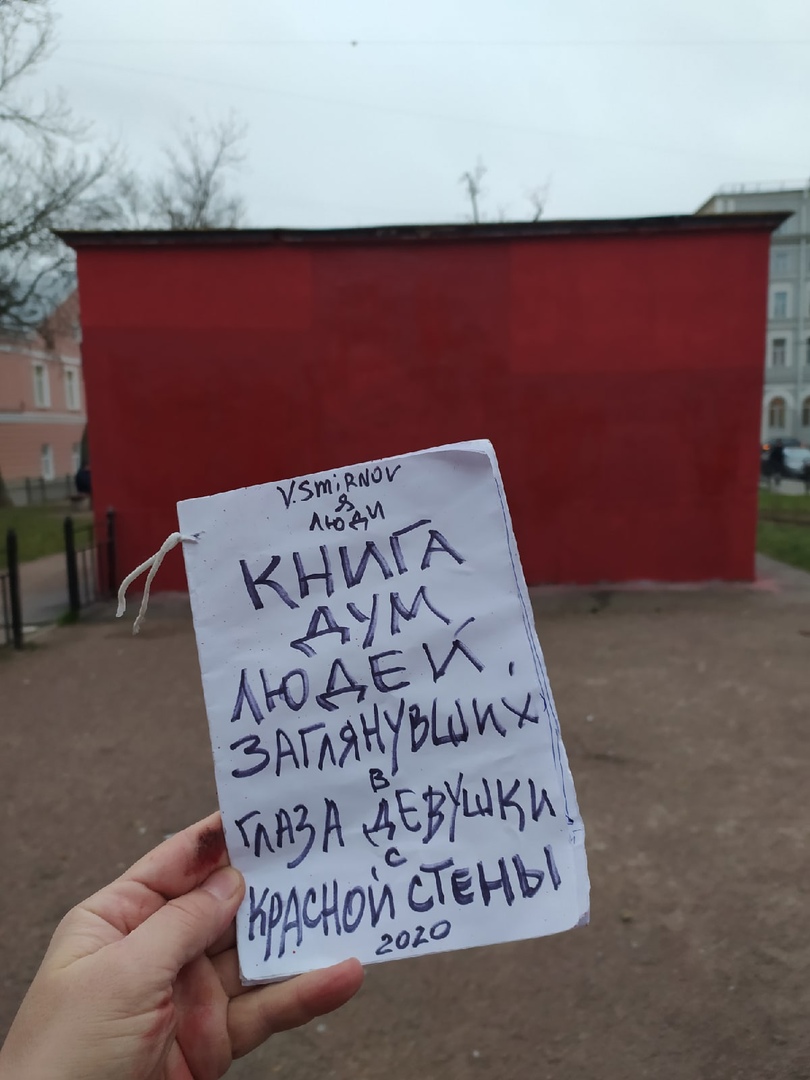 V.SMiRNOV
Я
ЛЮДИ
КНИГА
ДУМ
ЛЮДЕЙ,
ЗАГЛЯНУВШИХ
В
ГЛАЗА ДЕВУШКИ
С
КРАСНОЙ СТЕНЫ
2020